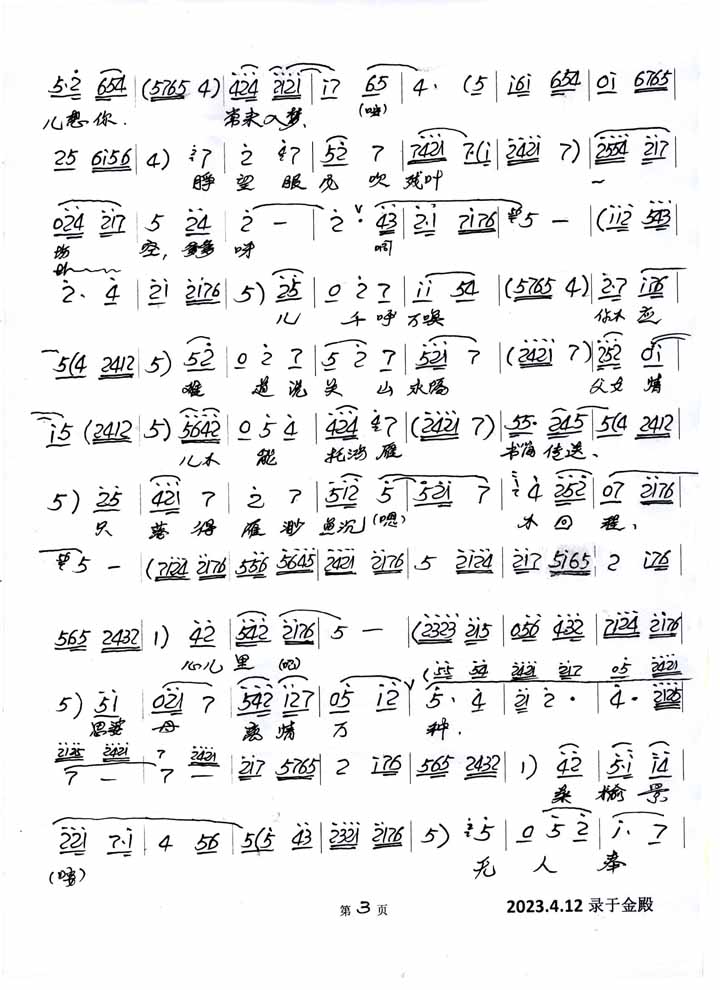 5·2 654 | (5765 4) | 424 2121 | i7 65 | 4· (5 | i6i 654 | 0i 6765
儿想你. 常来入梦, (嗨)
25 6156 | 4) 7 | 2 7 | 52 7 | 7421 7·(i | 2421 7) | 2554 217
睁望眼 风吹残叶
024 217 | 5 24 | 2 — | 2· 43 | 2·i 7176 | 5 — | (112 543
空, 呼 啊
2· 4 | 21 2176 | 5) 25 | 0 2 7 | ii 54 | (5765 4) | 2·7 i76
儿 千呼万唤 你不应
5(4 2412 | 5) 52 | 0 2 7 | 5 2 7 | 521 7 | (2421 7) | 252 0i
难道说关山水隔 父女情
i5 (2412 | 5) 5642 | 0 5 4 | 424 7 | (2421 7) | 55· 245 | 5(4 2412
儿不能托鸿雁 书信传送、
5) 25 | 421 7 | 2 7 | 512 5 | 521 7 | 4 252 | 07 2176
只落得雁渺鱼沉(嗯) 不回程、
5 — | (7124 2176 | 556 5645 | 2421 2176 | 5 2124 | 217 5165 | 2 i76
565 2432 | 1) 42 | 542 2176 | 5 — | (2323 215 | 056 432 | 7124 2176
心儿里 (呃)
(55 54 2421 217 05 2421
5) 5i | 021 7 | 542 i27 | 05 i2 | 5· 4 | 21 2· | 4· 2125
思婆母 离情万种.
2125 2421 7 2421
7 — | 7 — | 217 5765 | 2 i76 | 565 2432 | 1) 42 | 5·i i4
桑榆景
221 7·i | 4 56 | 5(5 43 | 2321 2176 | 5) 5 | 0 5 2 | i· 7
(嗨) 无人奉
第 3 页 2023.4.12 录于金殿